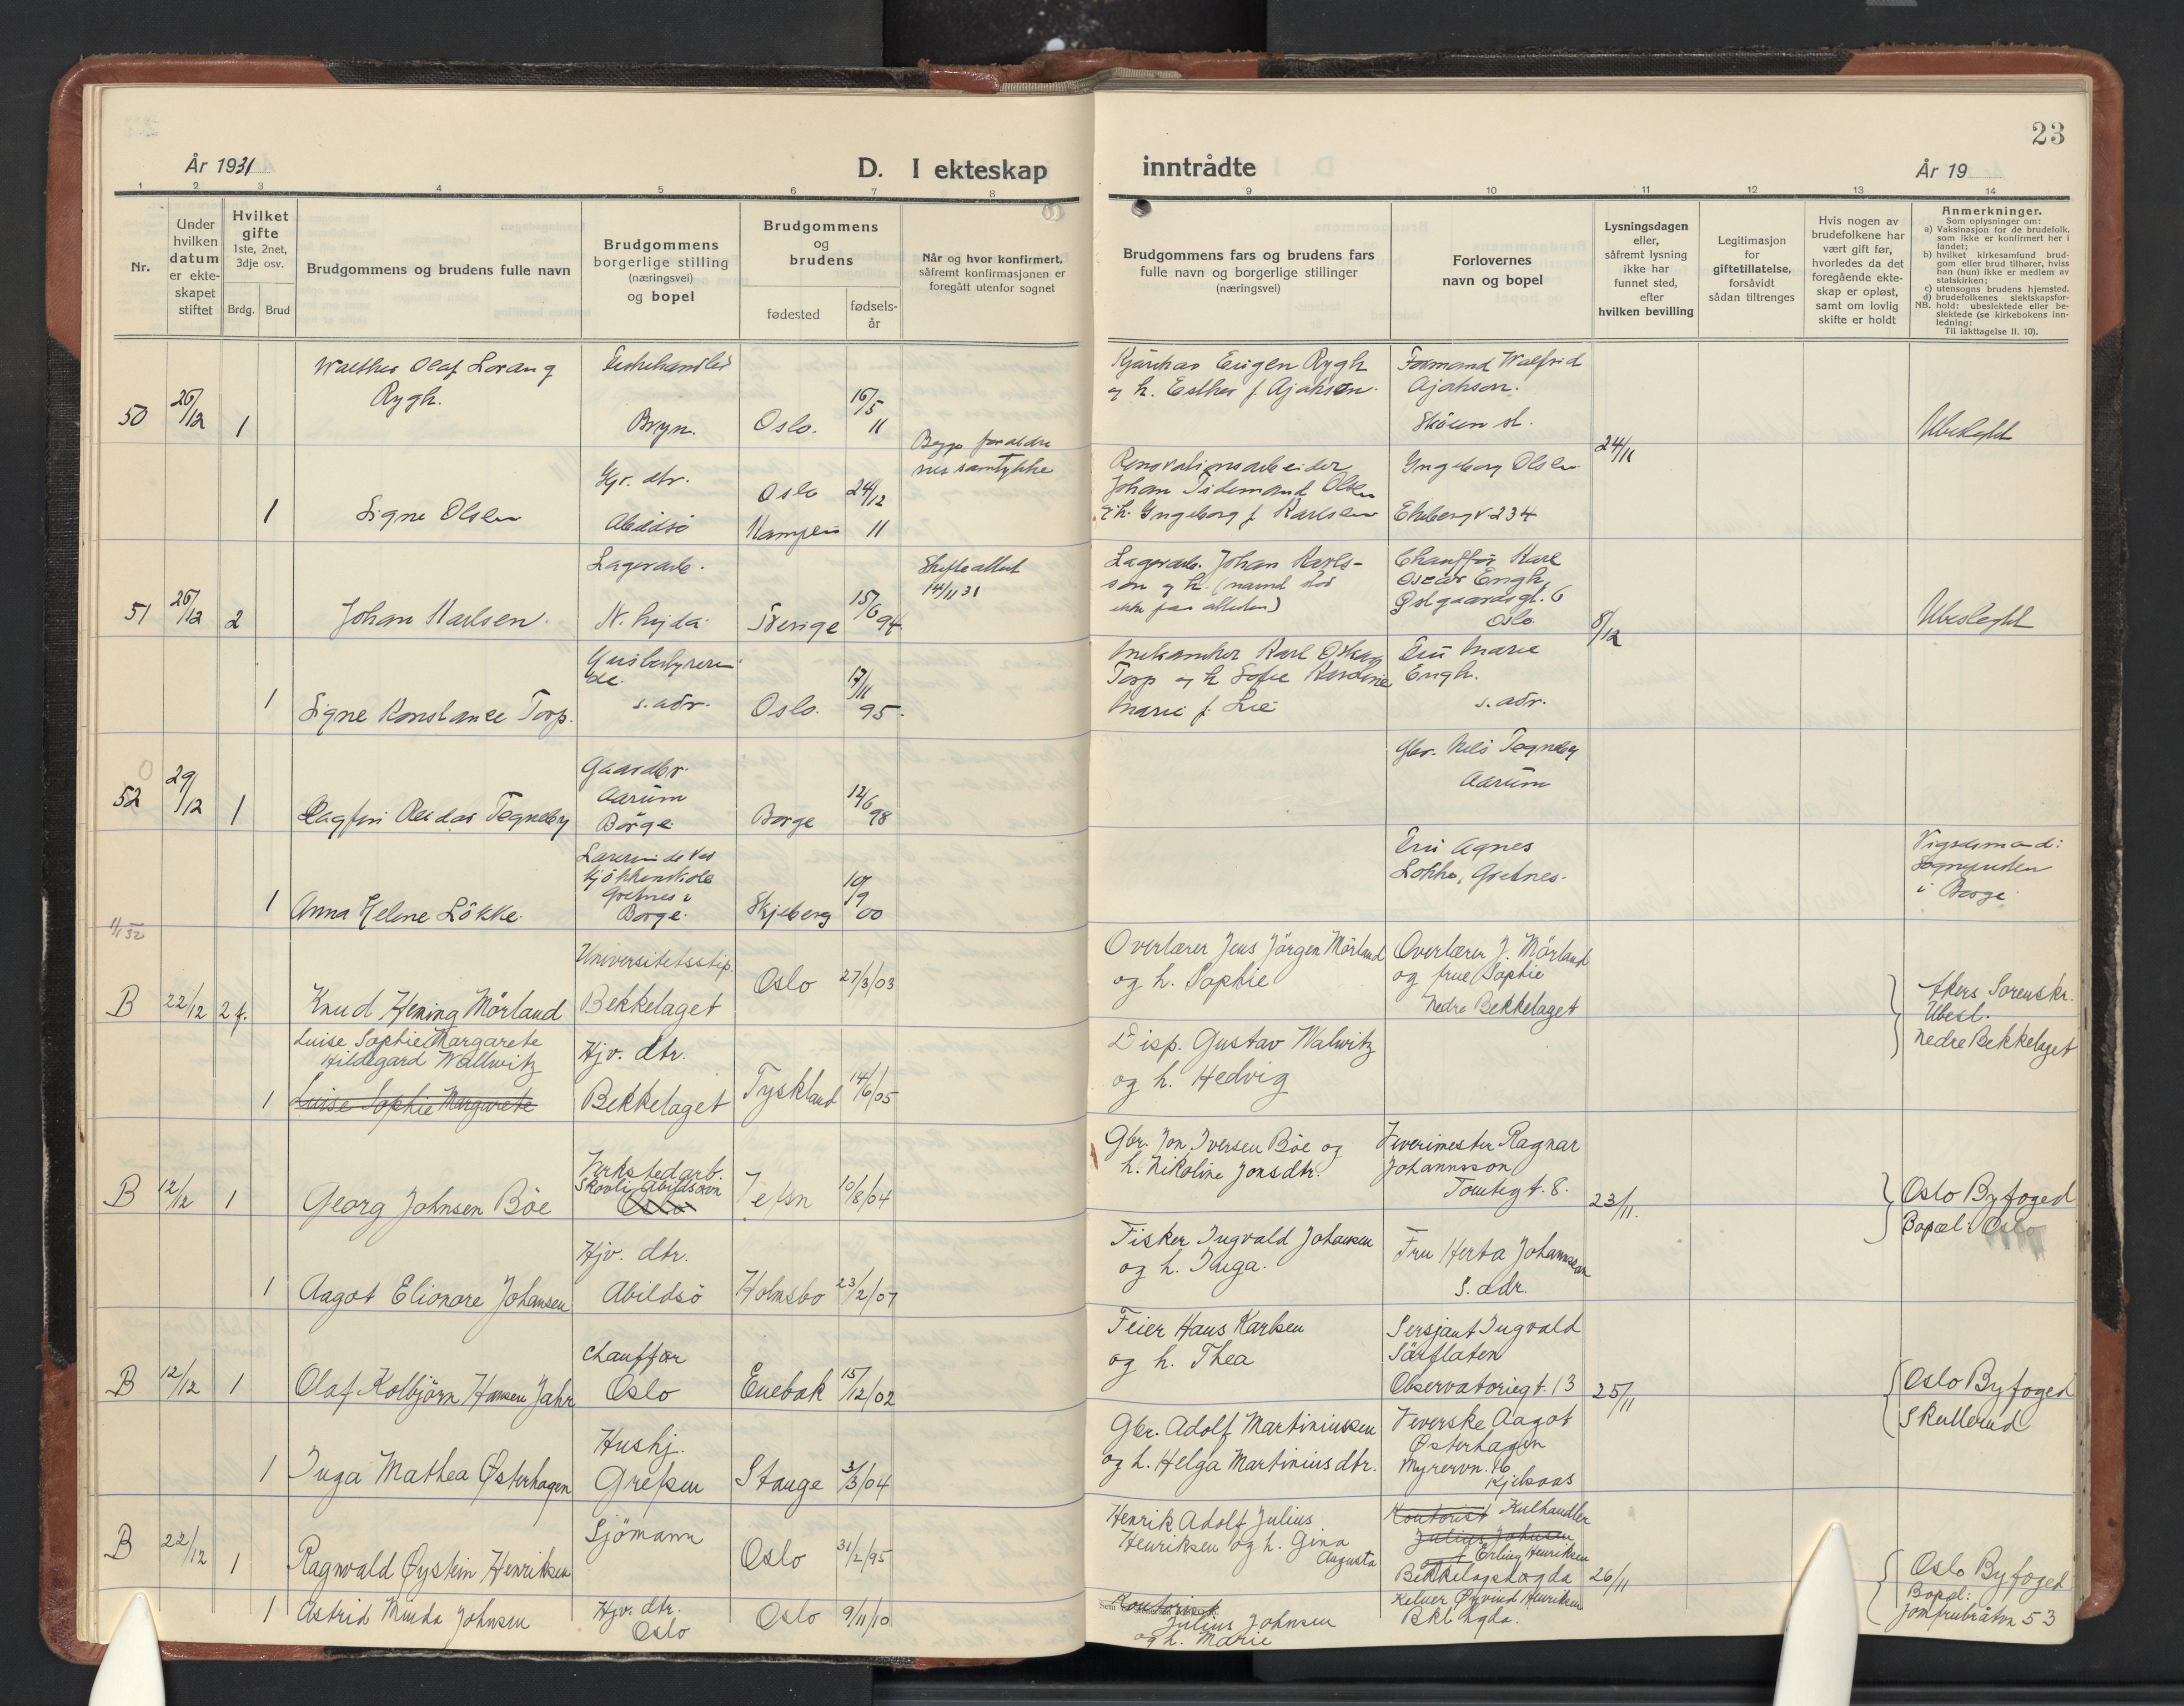 23
År 1931
D. I ekteskap
inntrådte
År 19
1 2 3 4 5 6 7 8 9 10 11 12 13 14
Nr.
Under
hvilken
datum
er ekte-
skapet
stiftet
Hvilket
gifte
1ste, 2net,
3dje osv.
Brdg. Brud
Brudgommens og brudens fulle navn
Brudgommens
borgerlige stilling
(næringsvei)
og bopel
Brudgommens
og
brudens
fødested
fødsels-
år
Når og hvor konfirmert,
såfremt konfirmasjonen er
foregått utenfor sognet
Brudgommens fars og brudens fars
fulle navn og borgerlige stillinger
(næringsvei)
Forlovernes
navn og bopel
Lysningsdagen
eller,
såfremt lysning
ikke har
funnet sted,
efter
hvilken bevilling
Legitimasjon
for
giftetillatelse,
forsåvidt
sådan tiltrenges
Hvis nogen av
brudefolkene har
vært gift før,
hvorledes da det
foregående ekte-
skap er opløst,
samt om lovlig
skifte er holdt
Anmerkninger.
Som oplysninger om:
a) Vaksinasjon for de brudefolk,
som ikke er konfirmert her i
landet;
b) hvilket kirkesamfund brud-
gom eller brud tilhører, hviss
han (hun) ikke er medlem av
statskirken;
c) utensogns brudens hjemsted.
d) brudefolkenes slektskapsfor-
NB. hold: ubeslektede eller be-
slektede (se kirkebokens inn-
ledning:
Til iakttagelse II. 10).
50
26/12
1
Walther Olaf Lorang
Rygh.
Fiskehandler
Bryn.
Oslo.
16/5
11
Begge foreldre
nes samtykke
Eugen Rygh
og h. Esther f. Ajakson.
Formand Walfrid
Ajakson.
Skøien st.
24/11
Ubeslegtet
1
Signe Olsen
Hjv. dtr.
Abildsø
Oslo
Kampen
24/12
11
Renovationsarbeider
Johan Tidemand Olsen
og h. Ingeborg f. Karlsen
Ingeborg Olsen
Ekebergv 234
51
26/12
2
Johan Karlsen.
Lagerarb.
Sverige
15/6 94.
Skifteattest
14/11 31
Lagerarb. Johan Karls-
son og h. (navnet stod
ikke paa attesten)
Chauffør Karl
Oscar Engh,
Østgaardsgt. 6
Oslo
8/12
Ubeslegtet
1
Signe Konstance Torp.
Husbestyrerin
de.
s. adr.
Oslo.
17/11
95.
Mekaniker Karl Oskar
Torp og h. Sofie
Marie f. Lie
Fru Marie
Engh.
s. adr.
52
29/12
1
Dagfin Reidar Tegneby
Gaardbr.
Aarum
Borge
Borge
12/6
98
Gbr. Nils Tegneby
Aarum
1
Anna Helene Løkke.
Lærerinde ved
kjøkkenskole
Grefnes i
Borge.
Skjeberg
10/9
00
Fru Agnes
Løkke, Grefnes.
Vigselsmand:
Sognepresten
i Borge
1/1 32
B
22/12
2 f.
Knud Hening Mörland
Universitetsstip.
Bekkelaget
Oslo
27/3/03
Overlærer Jens Jörgen Mörland
og h. Sophie
Overlærer J. Mörland
og frue Sophie
Nedre Bekkelaget
Akers Sorenskr.
Ubesl.
Nedre Bekkelaget
Luise Sophie Margarete
Hildegard Wallwitz
1
Luise Sophie Margarete
Hjv. dtr.
Bekkelaget
Tyskland
14/6/05
Disp. Gustav Walwitz
og h. Hedvig
B
12/12
1
Georg Johnsen Böe
Verkstedarb.
Skovli Abildsøvn
Oslo
Vefsn
10/8/04
Gbr. Jon Iversen Böe og
h. Nikoline Jonsdtr.
Veverimester Ragnar
Johannsson
Tomtegt. 8.
23/11.
Oslo Byfoged
Bopæl: Oslo
1
Aagot Elionore Johansen
Hjv. dtr.
Abildsö
Holmsbo
23/2/07
Fisker Ingvald Johansen
og h. Inga.
Fru Herta Johannsson
S. adr.
B
12/12
1
Olaf Kolbjörn Hansen Jahr
Chauffør
Oslo
Enebak
15/12/02
Feier Hans Karlsen
og h. Thea
Sersjant Ingvald
Särflaten
Observatoriegt. 13
25/11
Oslo Byfoged
Skullerud
1
Inga Mathea Østerhagen
Hushj.
Grefsen
Stange
3/3/04
Gbr. Adolf Martiniussen
og h. Helga Martiniusdtr.
Veverske Aagot
Østerhagen
Myrervn. 16
Kjelsaas
B
22/12
1
Ragnvald Øystein Henriksen
Sjömann
Oslo
31/2/95
Henrik Adolf Julius
Henriksen og h. Gina
Augusta
Kontorist Kulhandler
Julius Johnsen
Erling Henriksen
Bekkelagshøgda
26/11
Oslo Byfoged
Bopæl:
Jomfrubråtn 53
1
Astrid Minda Johnsen
Hjv. dtr.
Oslo
Oslo
9/11/10
Kontorist
Julius Johnsen
og h. Marie
Kelner Øyvind Henriksen
Bkl. hgda.